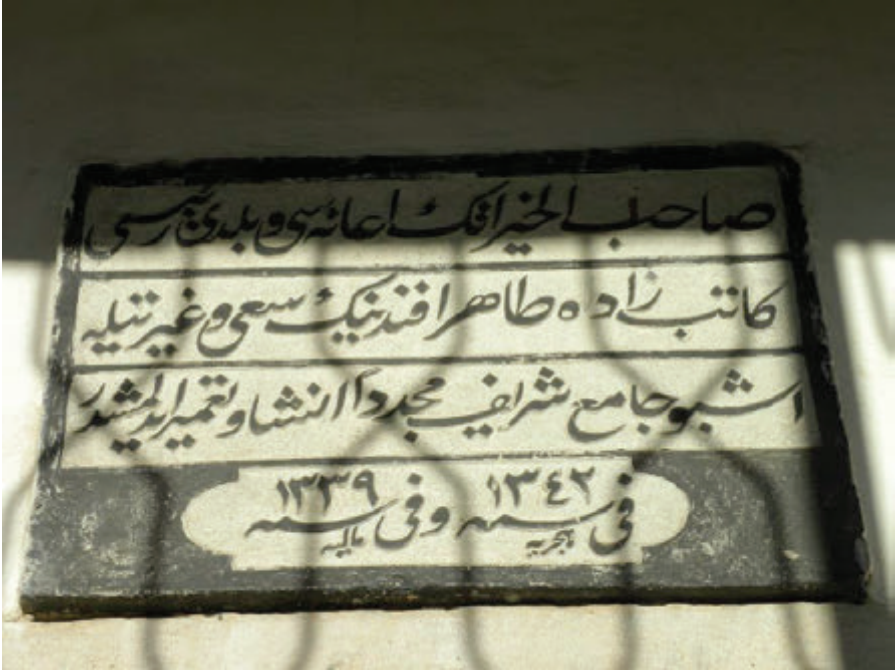 صاحب الخيراتك اعانه سی و بلدی رئيسی
كاتب زاده طاهر افندينك سعی و غيرتيله
اشبو جامع شريف مجدداً انشا و تعمير ايدلمشدر
فی سنه هجريه ١٣٤٢ و فی سنه ماليه ١٣٣٩